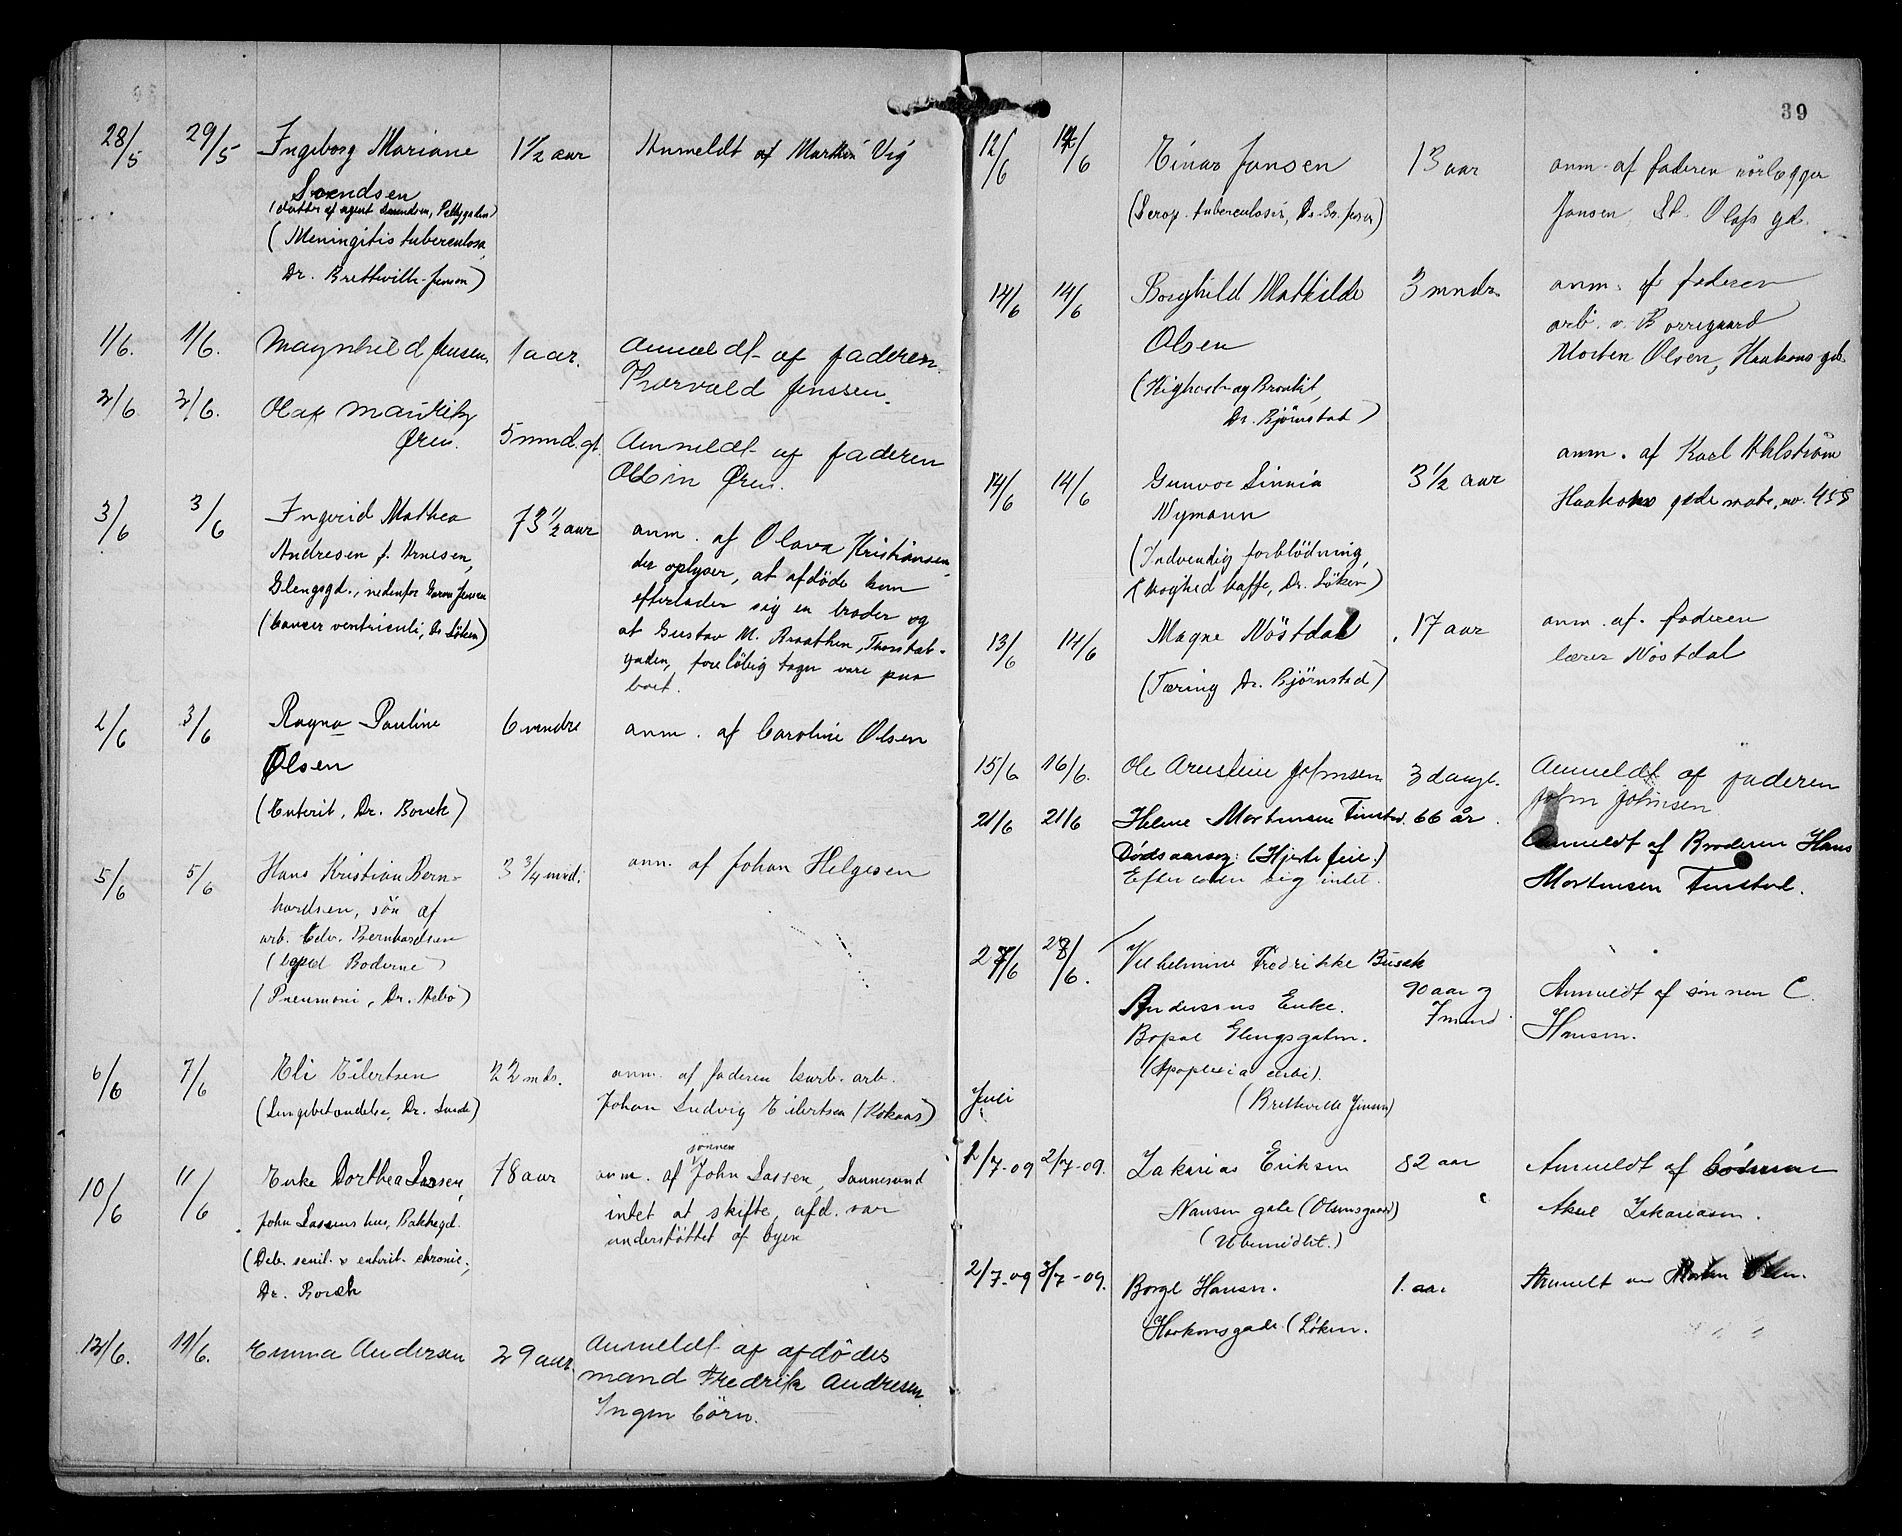 28/5 29/5 Ingeborg Mariane 1 1/2 aar Anmeldt af Marthin Vig
Svendsen
(datter af agent Svendsen, Pellygaden)
(Meningitis tuberculosa,
Dr. Bretteville-Jensen)
1/6. 1/6. Magnhild Jensen. 1 aar. Anmeldt af faderen
Thorvald Jenssen.
2/6. 2/6. Olaf Mauritz
Øren. 5 mnd. gl. Anmeldt af faderen
Øren.
3/6 3/6 Ingerid Mathea 73 1/2 aar anm. af Olava Kristiansen,
Andresen f. Arnesen, der oplyser, at afdöde kun
Glengsgd., nedenfor Jensen efterlader sig en broder og
(Cancer ventriculi, Dr. Löken) at Gustav M. Braathen, Thorstad-
gaden, foreløbig tager vare paa
boet.
2/6 3/6 Ragna Pauline 6 mndr anm. af Caroline Olsen
Olsen
(Enterit, Dr. Borch)
5/6 5/6 Hans Kristian Bern- 3 3/4 mnd. anm. af Johan Helgesen
hardsen, sön af
arb. Edv. Bernhardsen
Boderne)
(Pneumoni, Dr. )
6/6 7/6 Eli Eilertsen 22 mdr. anm. af faderen karb. arb.
(Lungebetændelse, Dr. ) Johan Ludvig Eilertsen (Kokaas)
10/6 11/6 Enke Dorthea Lassen, 78 aar anm. af sönnen John Lassen, Sannesund
John Lassens hus, Bakkegd. intet at skifte, afd. var
(Deb. senil. & enterit. chronic., understöttet af byen
Dr. Borch
12/6. 14/6. Emma Andersen 29 aar. Anmeldt af afdödes
mand Fredrik Andresen.
Ingen börn.
39
12/6 14/6 Einar Jansen 13 aar anm. af faderen rörlægger
(Scrof. tuberculosis, Dr. ) Jansen, St. Olafs gd.
14/6 14/6 Borghild Mathilde 3 mndr. anm. af faderen
Olsen arb. v. Borregaard
(Kighoste og Bronkit, Morten Olsen, Haakons gd.
Dr. Björnstad)
14/6 14/6 Gunvor Linnia 3 1/2 aar anm. af Karl Ahlström
Nymann Haakons gade matr. no. 455
(Indvendig forblödning,
kaffe, Dr. Löken)
13/6 14/6 Magne Nöstdal 17 aar anm. af faderen
(Tæring Dr. Björnstad) lærer Nöstdal
15/6 16/6. Ole Arnstein Johnsen 3 dag gl. Anmeldt af faderen
John Johnsen
21/6 21/6 Helene Mortensen Finstad. 66 år. Anmeldt af Broderen Hans
Dödsaarsag: (Hjertefeil.) Mortensen Finstad.
Efterlader sig intet.
27/6 28/6. Vilhelmine Fredrikke Busch
Andersens Enke. 90 aar og 7 mnd. Anmeldt af sönnen C.
Bopæl Glengsgaten. Hansen.
(Apoplexia cerebri).
(Bretteville Jensen)
Juli
1/7-09 2/7-09. Zakarias Eriksen 82 aar Anmeldt af Sönnen
Nansen gate (Olsensgaard) Aksel Zakariasen.
(Ubemidlet.)
2/7-09 3/7-09. Borgl Hansen. 1. aar Anmeldt av Olsen.
Haakonsgade. (Löken.